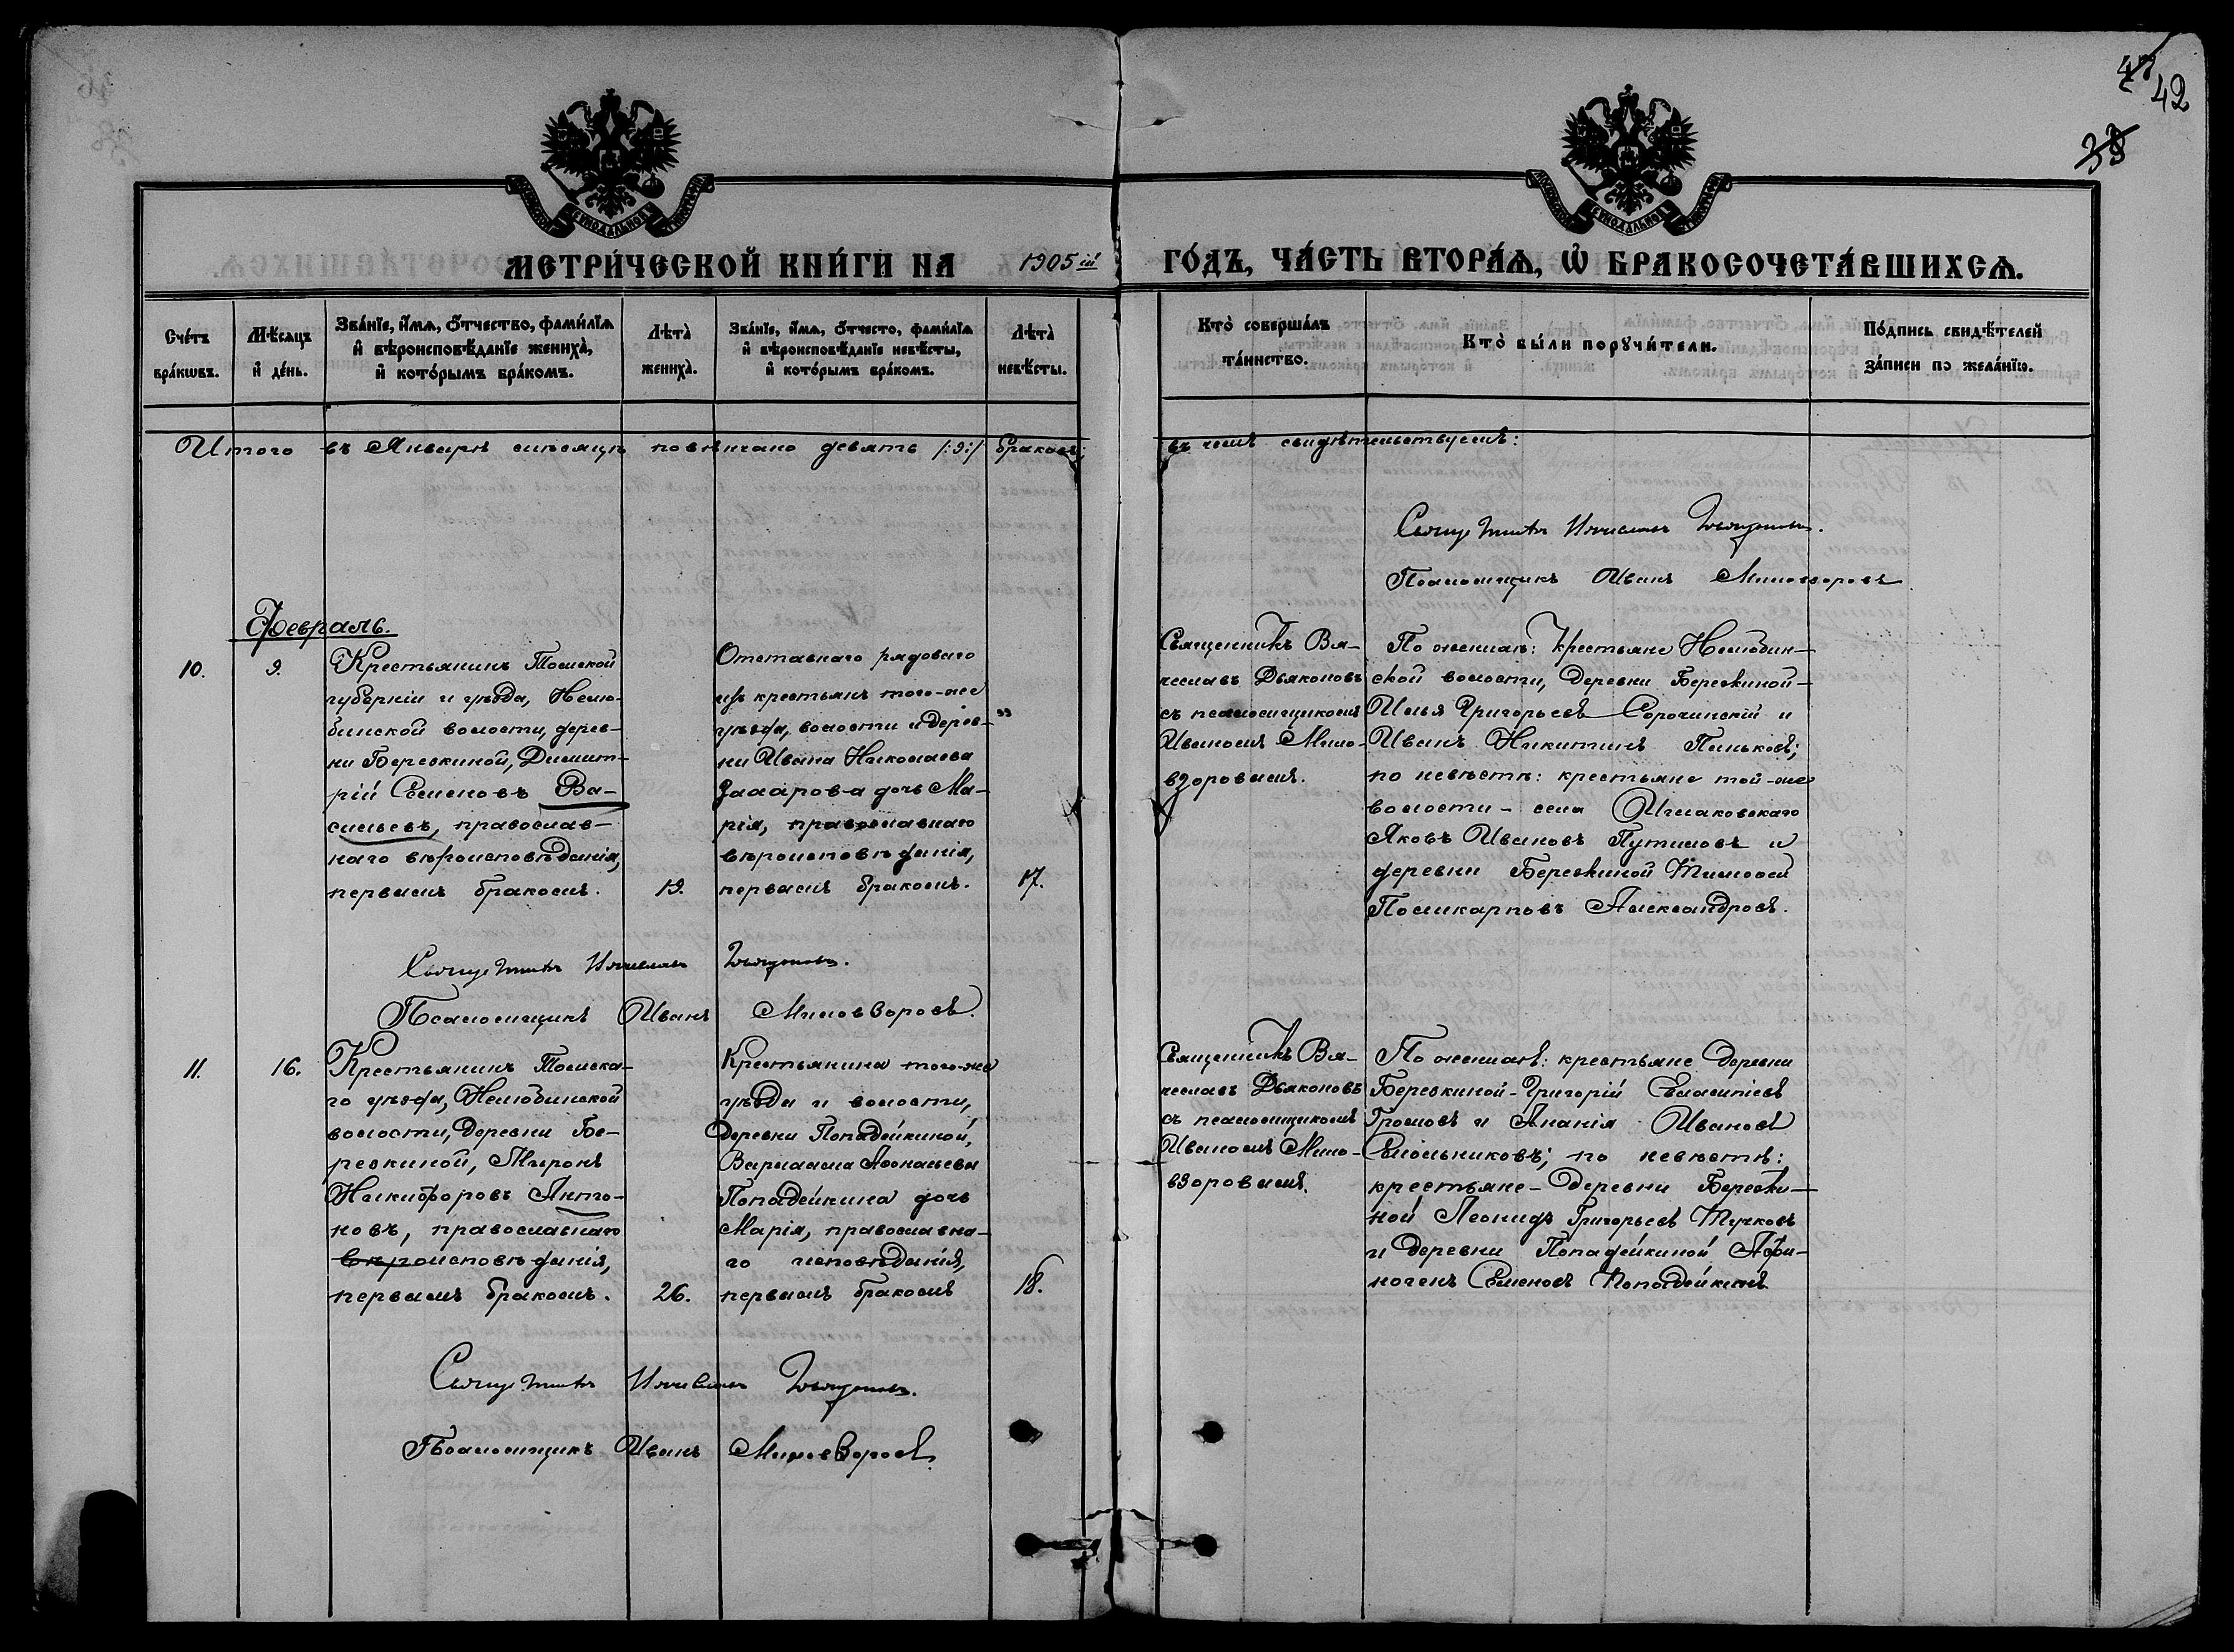 47
42
38
МЕТРИ́ЧЕСКОЙ КНИ́ГИ НА 1905ый ГО́ДЪ, ЧА́СТЬ ВТОРА́Ѧ, Ѽ БРАКОСОЧЕТА́ВШИХСѦ.
Сче́тъ бра́кѡвъ.
Мѣ́сяцъ и҆ де́нь.
Зва́нїе, и҆́мѧ, ѻ҆́тчество, фами́лїѧ
и҆ вѣроисповѣ́данїе жениха̀,
и҆ кото́рымъ бра́комъ.
Лѣта̀ жениха̀.
Зва́нїе, и҆́мѧ, ѻ҆́тчесто, фами́лїѧ
и҆ вѣроисповѣ́данїе невѣ́сты,
и҆ кото́рымъ бра́комъ.
Лѣта̀ невѣ́сты.
Кто̀ соверша́лъ
та́инство.
Кто̀ бы́ли порꙋчи́тели.
По́дпись свидѣ́телей
за́писи по жела́нїю.
Итого въ Январѣ мѣсяцѣ повѣнчано девять /:9:/ браковъ;
въ чемъ свидѣтельствуемъ:
Священникъ Вячеславъ Дьяконовъ.
Псаломщикъ Иванъ Миловзоровъ
Февраль.
10.
9.
Крестьянинъ Томской
губерніи и уѣзда, Нелю-
бинской волости, дерев-
ни Березкиной, Димит-
рій Семеновъ Ва-
сильевъ, православ-
наго вѣроисповѣданія,
первымъ бракомъ.
19.
Отставнаго рядового
изъ крестьянъ того-же
уѣзда, волости и дерев-
ни Ивана Николаева
Захарова дочь Ма-
рія, православнаго
вѣроисповѣданія,
первымъ бракомъ.
17.
Священникъ Вя-
чеславъ Дьяконовъ
съ псаломщикомъ
Иваномъ Мило-
взоровымъ.
По женихѣ: крестьяне Нелюбин-
ской волости, деревни Березкиной-
Илья Григорьевъ Сорочинскій и
Иванъ Никитинъ Паньковъ;
по невѣстѣ: крестьяне той-же
волости - села Ишмаковскаго
Яковъ Ивановъ Путиловъ и
деревни Березкиной Тимофей
Поликарповъ Александровъ.
Священникъ Вячеславъ Дьяконовъ.
Псаломщикъ Иванъ Миловзоровъ.
11.
16.
Крестьянинъ Томска-
го уѣзда, Нелюбинской
волости, деревни Бе-
резкиной, Миронъ
Никифоровъ Анто-
новъ, православнаго
вѣроисповѣданія,
первымъ бракомъ.
26.
Крестьянина того-же
уѣзда и волости,
деревни Попадейкиной,
Варлаама Аѳонасьева
Попадейкина дочь
Марія, православна-
го исповѣданія,
первымъ бракомъ
18.
Священникъ Вя-
чеславъ Дьяконовъ
съ псаломщикомъ
Иваномъ Мило-
взоровымъ.
По женихѣ: крестьяне деревни
Березкиной - Григорій Евлампіевъ
Громовъ и Ананія Ивановъ
Смольниковъ; по невѣстѣ:
крестьяне - деревни Березки-
ной Леонидъ Григорьевъ Тучковъ
и деревни Попадейкиной Афи-
ногенъ Семеновъ Попадейкинъ
Священникъ Вячеславъ Дьяконовъ.
Псаломщикъ Иванъ Миловзоровъ.